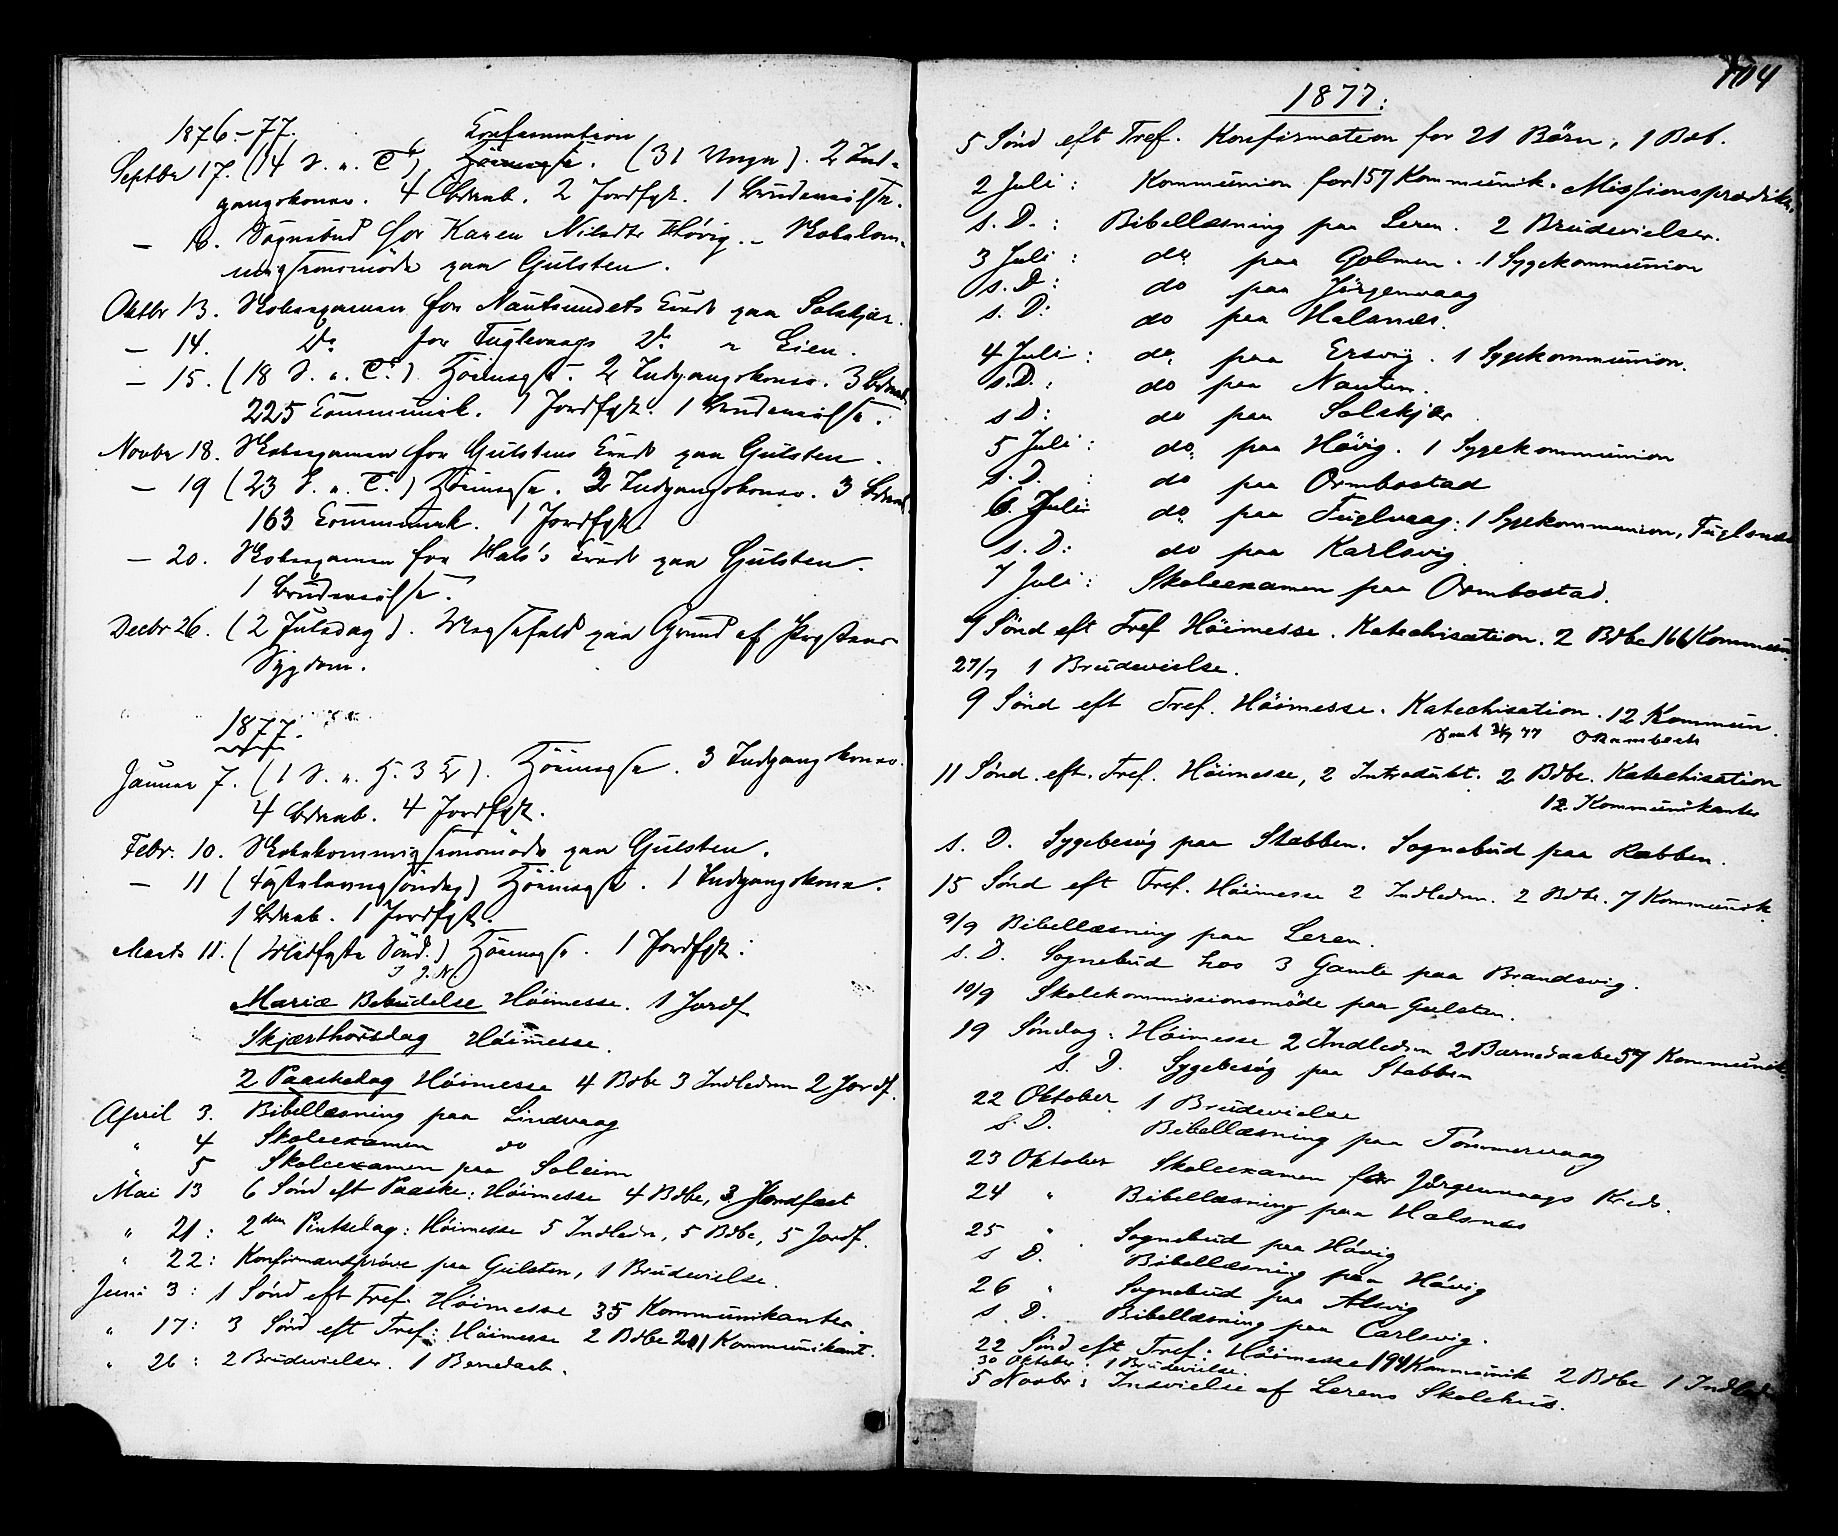 1876-77.
Konfirmation
Septbr 17. (14 S. e. T.) Höimesse. (31 Unge). 2 Ind-
gangskoner. 4 Bdaab. 2 Jordfgt. 1 Brudevielse.
— Sognebud for Karen Nilsdtr Hövig. – Skolekom-
missionsmöde paa Gulsten.
Oktbr 13. Skoleexamen for Nautsundets Kreds paa Solskjær.
— 14. Do for Fuglevaags Do " Lien.
— 15. (18 S. e. T.) Höimesse. 2 Indgangskoner. 3 Bdaab.
225 Kommunik. 1 Jordfgt. 1 Brudevielse.
Novbr 18. Skoleexamen for Gulstens Kreds paa Gulsten.
— 19 (23 S. e. T.) Höimesse. 2 Indgangskoner. 3 Bdaab.
163 Kommunik. 1 Jordfgt.
— 20. Skoleexamen for Hals's Kreds paa Gulsten.
1 Brudevielse.
Decbr 26. (2 Juledag). Messefald paa Grund af Præstens
Sygdom.
1877.
Januar 7. (1 S. e. H. 3 K.). Höimesse. 3 Indgangskoner.
4 Bdaab. 4 Jordfgt.
Febr. 10. Skolekommissionsmöde paa Gulsten.
— 11 (Fastelavnssöndag) Höimesse. 1 Indgangskone.
1 Bdaab. 1 Jordfgt.
Marts 11. (Midfaste Sönd.) Höimesse. 1 Jordfgt.
Mariæ Bebudelse Höimesse. 1 Jordf
Skjærthorsdag Höimesse.
2 Paaskedag Höimesse 4 Bdbe 3 Indledrn 2 Jordf.
April 3. Bibellæsning paa Lindvaag
" 4 Skoleexamen do
5 Skoleexamen paa Soleim
Mai 13 6 Sönd eft Paaske: Höimesse 4 Bdbe, 3 Jordfæst
" 21: 2den Pintsedag: Höimesse 5 Indledn, 5 Bdbe, 5 Jordf.
" 22: Konfirmandpröve paa Gulsten, 1 Brudevielse.
Juni 3: 1 Sönd eft Tref. Höimesse 35 Kommunikanter.
" 17: 3 Sönd eft Tref: Höimesse 2 Bdbe 201 Kommunikant.
" 26: 2 Brudevielser. 1 Bernedaab.
104
1877:
5 Sönd eft Tref. Konfirmation for 21 Börn, 1 Bdb.
2 Juli: Kommunion for 157 Kommunik. Missionsprædik.
s. D.: Bibellæsning paa Leren. 2 Brudevielser.
3 Juli: do paa Golmen. 1 Sygekommunion
s. D: do paa Jörgenvaag
s. D: do paa Halsnæs.
4 Juli: do paa Ersvig. 1 Sygekommunion.
s. D.: do paa Nauten.
s D: do paa Solskjær
5 Juli: do paa Hövig. 1 Sygekommunion
s. D. : do paa Ormbostad
6. Juli do paa Fuglvaag: 1 Sygekommunion, Fuglsnæs
s. D: do paa Karlsvig
7 Juli: Skoleexamen paa Ormbostad.
9 Sönd eft Tref Höimesse. Katechisation. 2 Bdbe 166 Kommun.
27/7 1 Brudevielse.
9 Sönd eft Tref. Höimesse. Katechisation. 12 Kommun.
11 Sönd. eft. Tref. Höimesse, 2 Introdukt. 2 Bdbe. Katechisation
12 Kommunikanter
s. D. Sygebesög paa Stabben. Sognebud paa Rabben.
15 Sönd eft Tref. Höimesse 2 Indledrn. 2 Bdbe. 7 Kommunik.
9/9 Bibellæsning paa Leren.
s. D. Sognebud hos 3 Gamle paa Brandsvig.
10/9 Skolekommissionsmöde paa Gulsten.
19 Söndag. Höimesse 2 Indledrn 2 Barnedaabe 57 Kommunik.
s. D. Sygebesög paa Stabben
22 Oktober 1 Brudevielse
s. D. Bibellæsning paa Tömmervaag
23 Oktober Skoleexamen for Jörgenvaags Kreds.
24 " Bibellæsning paa Halsnæs
25 " Sognebud paa Hövig
s D. Bibellæsning paa Hövig
26 " Sognebud paa Alsvig
s. D. Bibellæsning paa Carlsvig.
22 Sönd eft Tref: Höimesse 194 Kommunik 2 Bdbe 1 Indledn
30 Oktober: 1 Brudevielse.
5 Novbr: Indvielse af Lerens Skolehus.